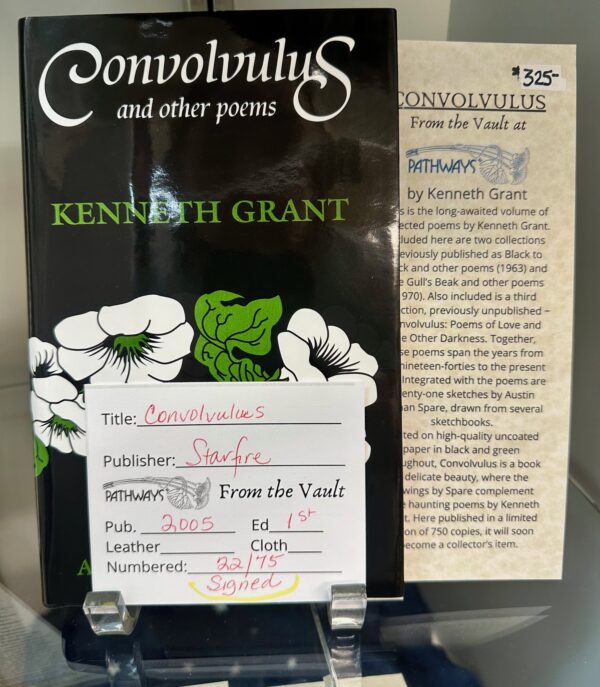 Convolvulus
and other poems
KENNETH GRANT
A
Title: Convolvulus
Publisher: Starfire
PATHWAYS From the Vault
Pub. 2005 Ed 1st
Leather Cloth
Numbered: 22/75
Signed
$325-
CONVOLVULUS
From the Vault at
PATHWAYS
by Kenneth Grant
s is the long-awaited volume of
ected poems by Kenneth Grant.
luded here are two collections
eviously published as Black to
ck and other poems (1963) and
e Gull's Beak and other poems
970). Also included is a third
ction, previously unpublished –
nvolvulus: Poems of Love and
e Other Darkness. Together,
se poems span the years from
nineteen-forties to the present
Integrated with the poems are
enty-one sketches by Austin
an Spare, drawn from several
sketchbooks.
ted on high-quality uncoated
paper in black and green
ughout, Convolvulus is a book
delicate beauty, where the
wings by Spare complement
e haunting poems by Kenneth
t. Here published in a limited
on of 750 copies, it will soon
ecome a collector's item.